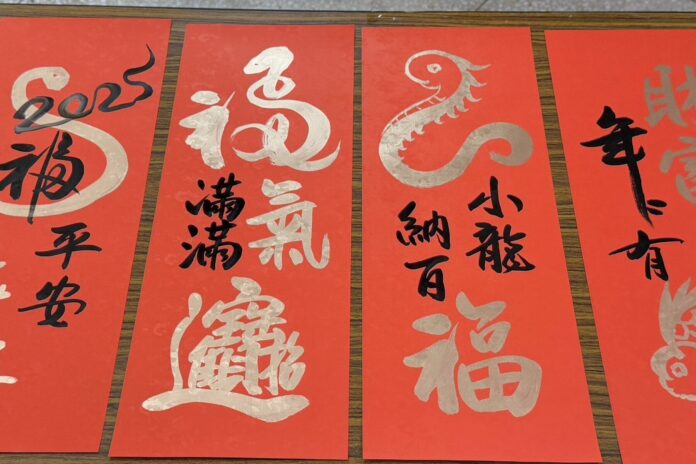 2025
福
平安
福
氣
滿滿
招財進寶
小龍
納百
福
年々有